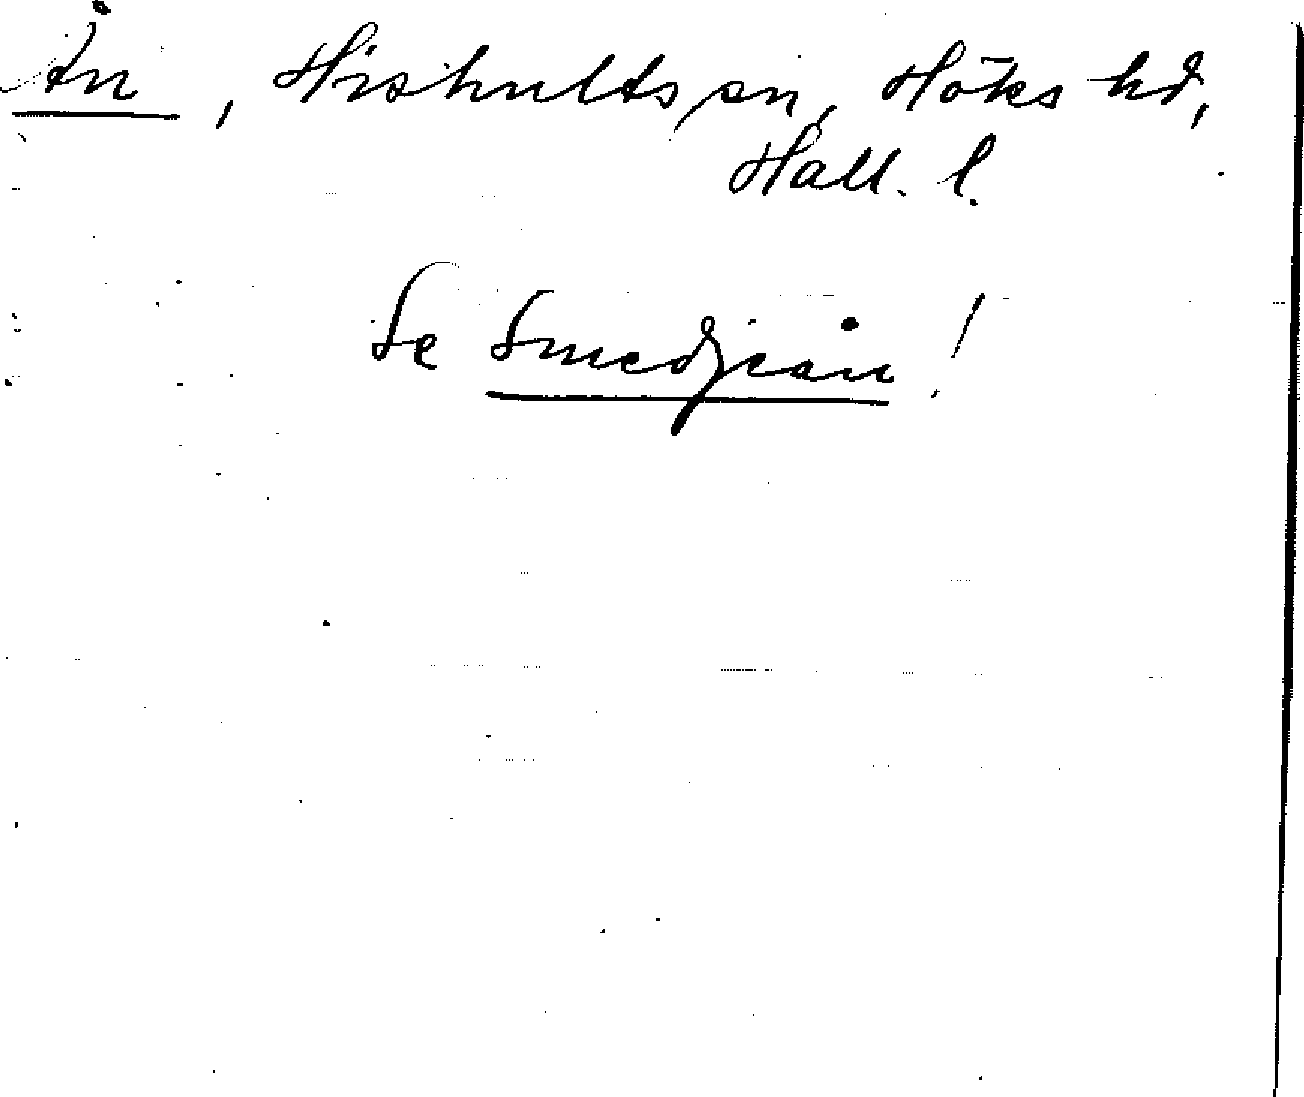 Ån, Hishults sn, Höks hd,
Hall. l.
Se Smedjeån!